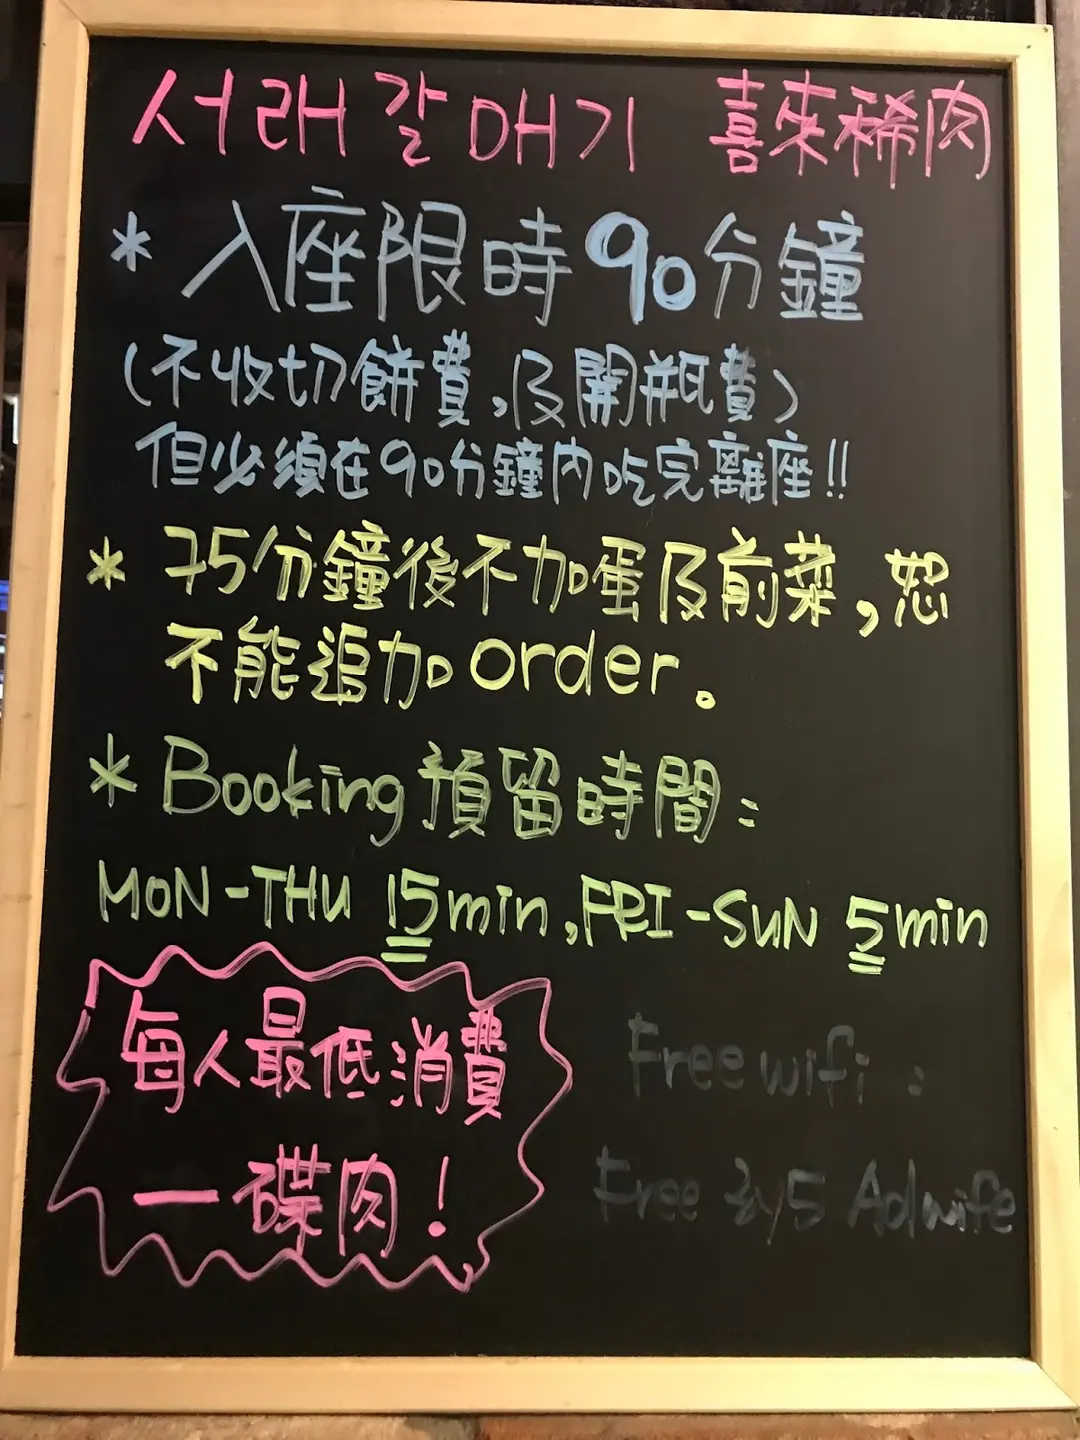 서래갈매기 喜來稀肉
* 入座限時90分鐘
(不收切餅費,及開瓶費)
但必須在90分鐘內吃完離座!!
* 75分鐘後不加蛋及前菜,恕
不能追加order。
* Booking預留時間:
MON-THU 15min,FRI-SUN 5min
每人最低消費
一碟肉!
Free wifi :
Free